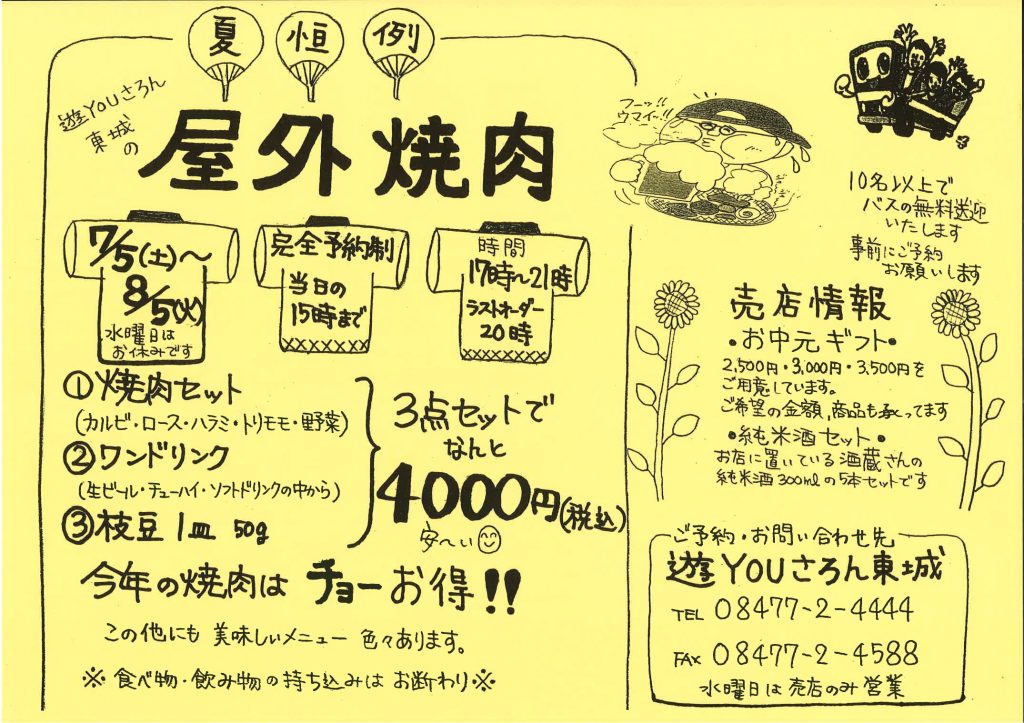 夏 恒 例
遊YOUさろん
東城の
屋外焼肉
フーッ!!
ウマイ〜!!
10名以上で
バスの無料送迎
いたします
事前にご予約
お願いします
7/5(土)〜
8/5(火)
水曜日は
お休みです
完全予約制
当日の
15時まで
時間
17時〜21時
ラストオーダー
20時
①焼肉セット
(カルビ・ロース・ハラミ・トリモモ・野菜)
②ワンドリンク
(生ビール・チューハイ・ソフトドリンクの中から)
③枝豆 1皿 50g
3点セットで
なんと
4000円(税込)
安〜い
今年の焼肉は チョーお得!!
この他にも 美味しいメニュー 色々あります。
※食べ物・飲み物の持ち込みは お断わり※
売店情報
・お中元ギフト・
2,500円・3,000円・3,500円を
ご用意しています。
ご希望の金額,商品も承ってます
・純米酒セット・
お店に置いている酒蔵さんの
純米酒300mlの5本セットです
ご予約・お問い合わせ先
遊YOUさろん東城
TEL 08477-2-4444
FAX 08477-2-4588
水曜日は売店のみ営業